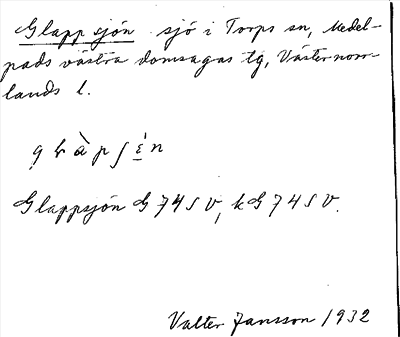 Glappsjön sjö i Torps sn, Medel-
pads västra domsagas tg, Västernorr-
lands l.
Glappsjön G 74 S V, k G 74 S V.
Valter Jansson 1932